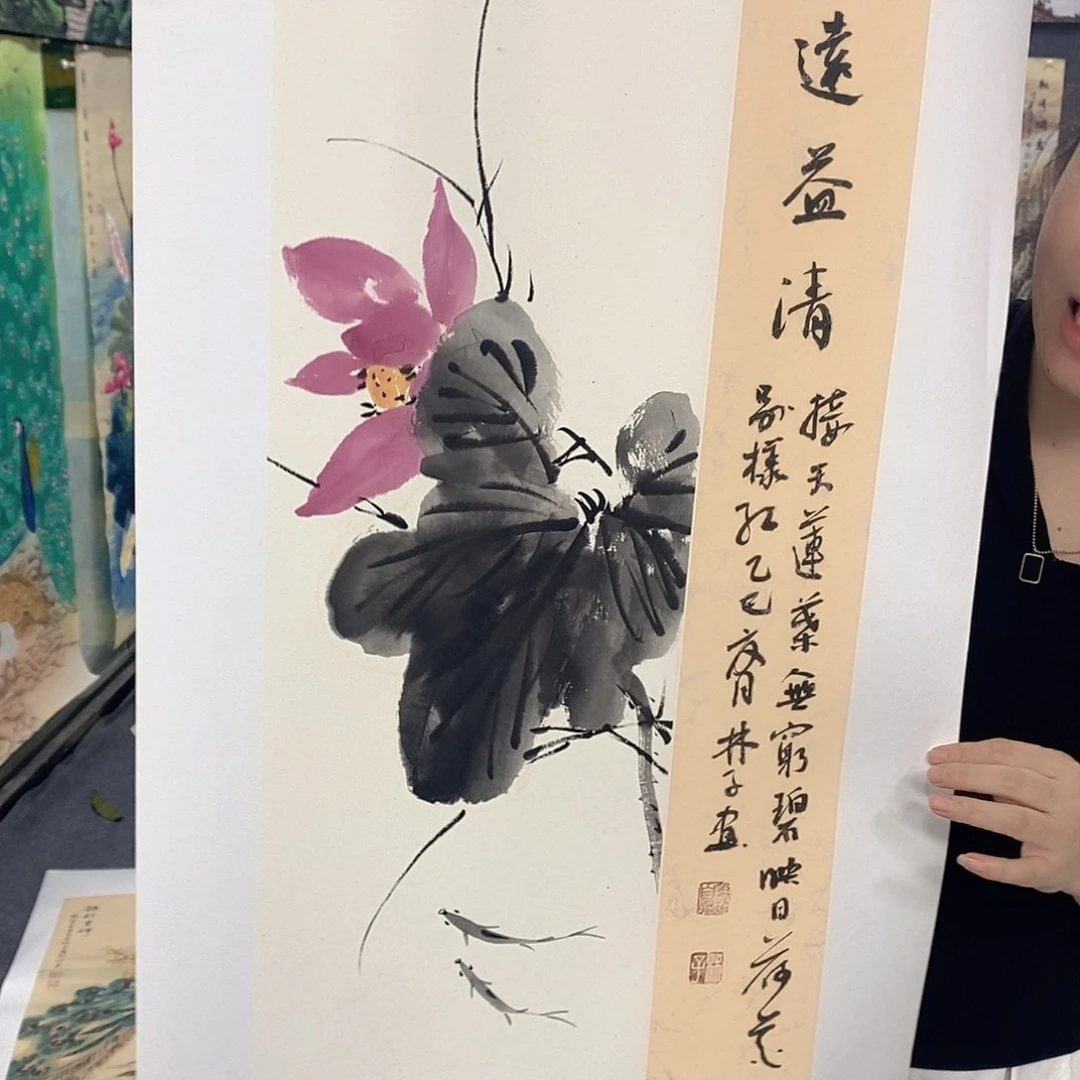 遠益清
接天蓮葉無窮碧映日荷花
別樣紅乙巳夏月林子畫